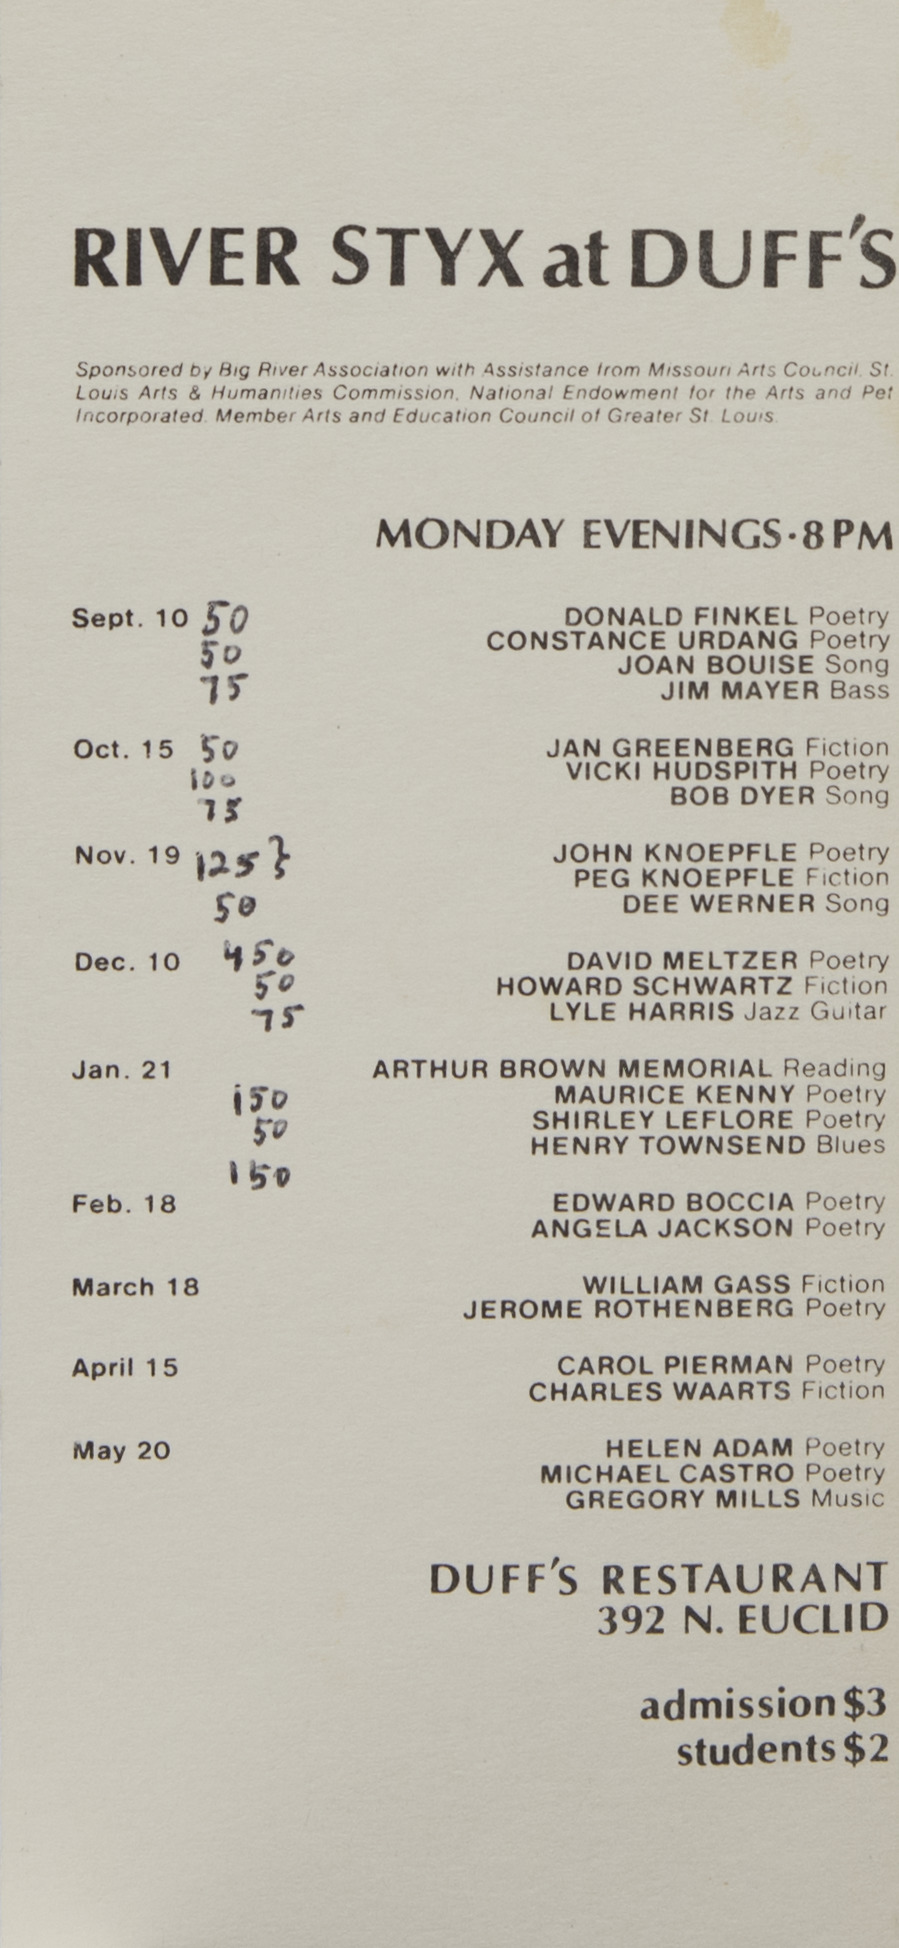 RIVER STYX at DUFF'S
Sponsored by Big River Association with Assistance from Missouri Arts Council, St.
Louis Arts & Humanities Commission, National Endowment for the Arts and Pet
Incorporated. Member Arts and Education Council of Greater St. Louis.
MONDAY EVENINGS·8 PM
Sept. 10 50 DONALD FINKEL Poetry
50 CONSTANCE URDANG Poetry
75 JOAN BOUISE Song
JIM MAYER Bass
Oct. 15 50 JAN GREENBERG Fiction
100 VICKI HUDSPITH Poetry
75 BOB DYER Song
Nov. 19 125 } JOHN KNOEPFLE Poetry
PEG KNOEPFLE Fiction
50 DEE WERNER Song
Dec. 10 450 DAVID MELTZER Poetry
50 HOWARD SCHWARTZ Fiction
75 LYLE HARRIS Jazz Guitar
Jan. 21 ARTHUR BROWN MEMORIAL Reading
150 MAURICE KENNY Poetry
50 SHIRLEY LEFLORE Poetry
150 HENRY TOWNSEND Blues
Feb. 18 EDWARD BOCCIA Poetry
ANGELA JACKSON Poetry
March 18 WILLIAM GASS Fiction
JEROME ROTHENBERG Poetry
April 15 CAROL PIERMAN Poetry
CHARLES WAARTS Fiction
May 20 HELEN ADAM Poetry
MICHAEL CASTRO Poetry
GREGORY MILLS Music
DUFF'S RESTAURANT
392 N. EUCLID
admission $3
students $2